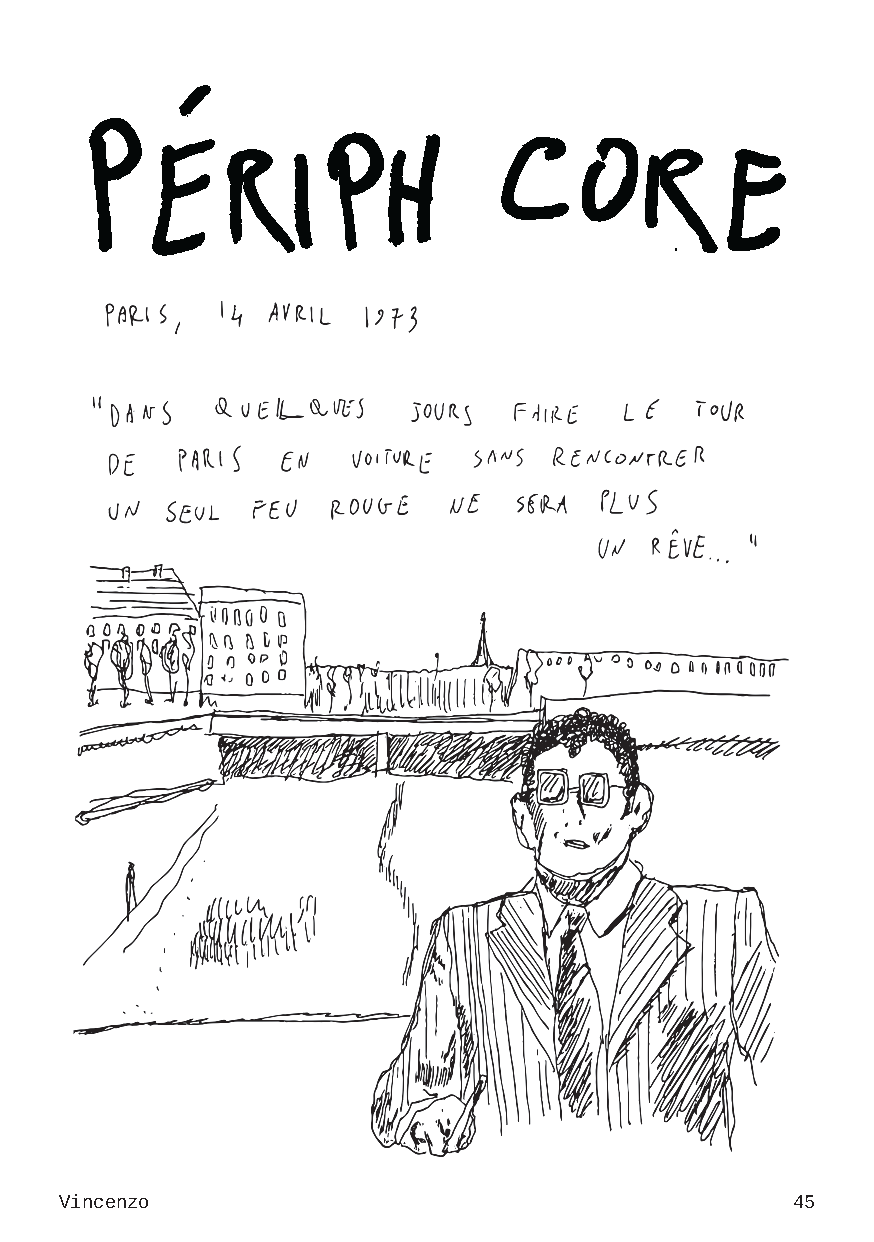 PÉRIPH CORE
PARIS, 14 AVRIL 1973
"DANS QUELQUES JOURS FAIRE LE TOUR
DE PARIS EN VOITURE SANS RENCONTRER
UN SEUL FEU ROUGE NE SERA PLUS
UN RÊVE... "
Vincenzo
45